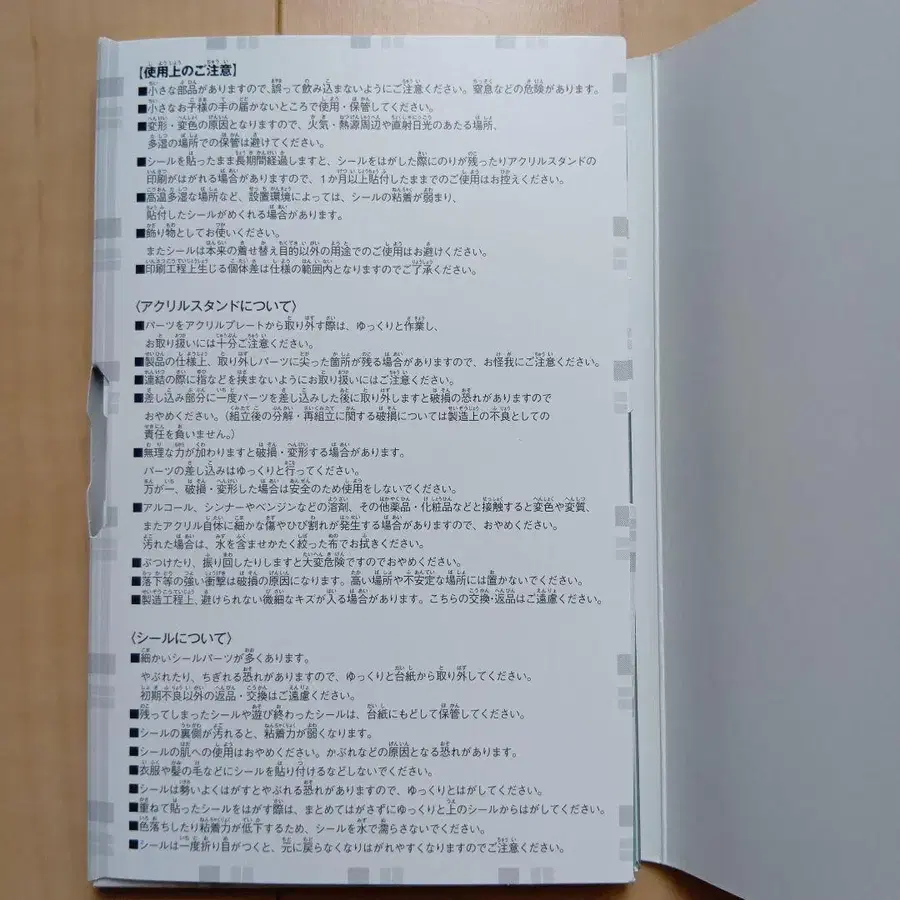 【使用上のご注意】
■小さな部品がありますので、誤って飲み込まないようにご注意ください。窒息などの危険があります。
■小さなお子様の手の届かないところで使用・保管してください。
■変形・変色の原因となりますので、火気・熱源周辺や直射日光のあたる場所、
多湿の場所での保管は避けてください。
■シールを貼ったまま長期間経過しますと、シールをはがした際にのりが残ったりアクリルスタンドの
印刷がはがれる場合がありますので、1か月以上貼付したままでのご使用はお控えください。
■高温多湿な場所など、設置環境によっては、シールの粘着が弱まり、
貼付したシールがめくれる場合があります。
■飾り物としてお使いください。
またシールは本来の着せ替え目的以外の用途でのご使用はお避けください。
■印刷工程上生じる個体差は仕様の範囲内となりますのでご了承ください。
〈アクリルスタンドについて〉
■パーツをアクリルプレートから取り外す際は、ゆっくりと作業し、
お取り扱いには十分ご注意ください。
■製品の仕様上、取り外しパーツに尖った箇所が残る場合がありますので、お怪我にご注意ください。
■連結の際に指などを挟まないようにお取り扱いにはご注意ください。
■差し込み部分に一度パーツを差し込みした後に取り外しますと破損の恐れがありますので
おやめください。（組立後の分解・再組立に関する破損については製造上の不良としての
責任を負いません。）
■無理な力が加わりますと破損・変形する場合があります。
パーツの差し込みはゆっくりと行ってください。
万が一、破損・変形した場合は安全のため使用をしないでください。
■アルコール、シンナーやベンジンなどの溶剤、その他薬品・化粧品などと接触すると変色や変質、
またアクリル自体に細かな傷やひび割れが発生する場合がありますので、おやめください。
汚れた場合は、水を含ませかたく絞った布でお拭きください。
■ぶつけたり、振り回したりしますと大変危険ですのでおやめください。
■落下等の強い衝撃は破損の原因になります。高い場所や不安定な場所には置かないでください。
■製造工程上、避けられない微細なキズが入る場合があります。こちらの交換・返品はご遠慮ください。
〈シールについて〉
■細かいシールパーツが多くあります。
やぶれたり、ちぎれる恐れがありますので、ゆっくりと台紙から取り外してください。
初期不良以外の返品・交換はご遠慮ください。
■残ってしまったシールや遊び終わったシールは、台紙にもどして保管してください。
■シールの裏側が汚れると、粘着力が弱くなります。
■シールの肌への使用はおやめください。かぶれなどの原因となる恐れがあります。
■衣服や髪の毛などにシールを貼り付けるなどしないでください。
■シールは勢いよくはがすとやぶれる恐れがありますので、ゆっくりとはがしてください。
■重ねて貼ったシールをはがす際は、まとめてはがさずにゆっくりと上のシールからはがしてください。
■色落ちしたり粘着力が低下するため、シールを水で濡らさないでください。
■シールは一度折り目がつくと、元に戻らなくなりはがれやすくなりますのでご注意ください。